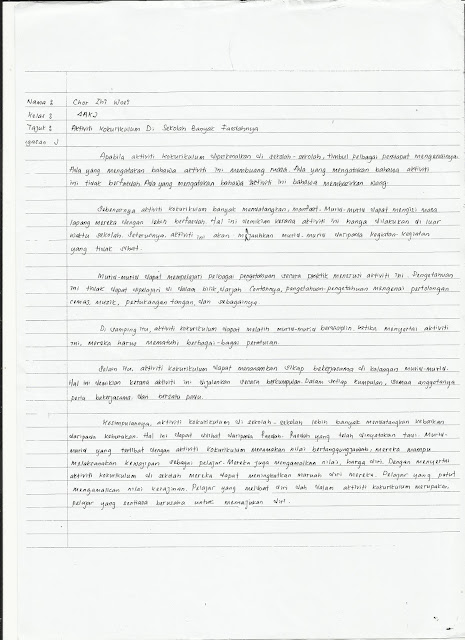 Nama :
Kelas : 4AK2
Tajuk : Aktiviti Kokurikulum Di Sekolah Banyak Faedahnya
Apabila aktiviti kokurikulum diperkenalkan di sekolah-sekolah, timbul pelbagai pendapat mengenainya.
Ada yang mengatakan bahawa aktiviti ini membuang masa. Ada yang mengatakan bahawa aktiviti
ini tidak berfaedah. Ada yang mengatakan bahawa aktiviti ini membazirkan wang.
Sebenarnya aktiviti kokurikulum banyak mendatangkan manfaat. Murid-murid dapat mengisi masa
lapang mereka dengan lebih berfaedah. Hal ini demikian kerana aktiviti ini hanya dilakukan di luar
waktu sekolah. Seterusnya, aktiviti ini akan menjauhkan murid-murid daripada kegiatan-kegiatan
yang tidak sihat.
Murid-murid dapat mempelajari pelbagai pengetahuan secara praktik menerusi aktiviti ini. Pengetahuan
ini tidak dapat dipelajari di dalam bilik darjah. Contohnya, pengetahuan-pengetahuan mengenai pertolongan
cemas, muzik, pertukangan tangan, dan sebagainya.
Di samping itu, aktiviti kokurikulum dapat melatih murid-murid berdisiplin. Ketika menyertai aktiviti
ini, mereka harus mematuhi berbagai-bagai peraturan.
Selain itu, aktiviti kokurikulum dapat menanamkan sikap bekerjasama di kalangan murid-murid.
Hal ini demikian kerana aktiviti ini dijalankan secara berkumpulan. Dalam setiap kumpulan, semua anggotanya
perlu bekerjasama dan bersatu padu.
Kesimpulannya, aktiviti kokurikulum di sekolah-sekolah lebih banyak mendatangkan kebaikan
daripada keburukan. Hal ini dapat dilihat daripada faedah-faedah yang telah dinyatakan tadi. Murid-
murid yang terlibat dengan aktiviti kokurikulum menanamkan nilai bertanggungjawab. Mereka mampu
melaksanakan kewajipan sebagai pelajar. Mereka juga mengamalkan nilai harga diri. Dengan menyertai
aktiviti kokurikulum di sekolah mereka dapat meningkatkan maruah diri mereka. Pelajar yang patut
mengamalkan nilai kerajinan. Pelajar yang melibat diri dah dalam aktiviti kokurikulum merupakan
pelajar yang sentiasa berusaha untuk memajukan diri.